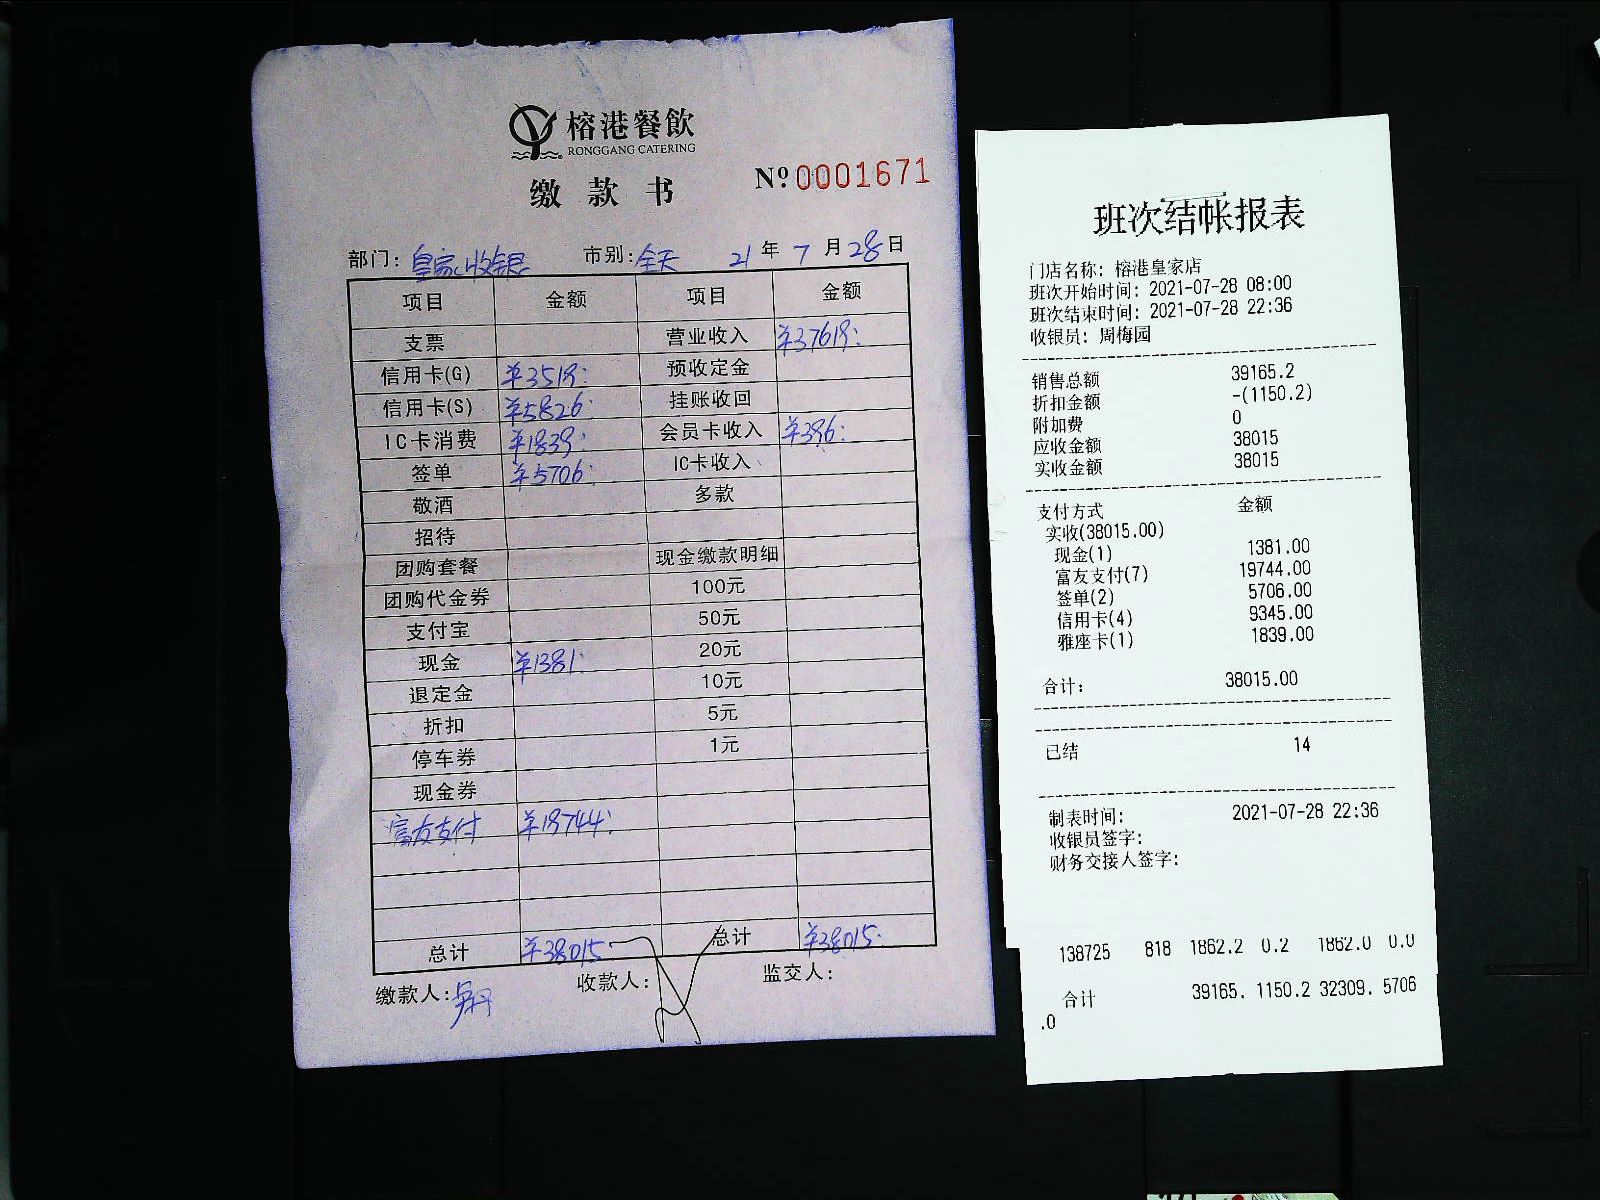 榕港餐飲
RONGGANG CATERING
缴款书
№ 0001671
部门: 皇家收银 市别: 全天 21年7月28日
项目 金额 项目 金额
支票 营业收入 ¥37619.
信用卡(G) ¥3519. 预收定金
信用卡(S) ¥5826. 挂账收回
IC卡消费 ¥1839. 会员卡收入 ¥396.
签单 ¥5706. IC卡收入
敬酒 多款
招待
团购套餐 现金缴款明细
团购代金券 100元
支付宝 50元
现金 ¥1381. 20元
退定金 10元
折扣 5元
停车券 1元
现金券
富友支付 ¥19744.
总计 ¥38015. 总计 ¥38015.
缴款人: 收款人: 监交人:
班次结帐报表
门店名称: 榕港皇家店
班次开始时间: 2021-07-28 08:00
班次结束时间: 2021-07-28 22:36
收银员: 周梅园
销售总额 39165.2
折扣金额 -(1150.2)
附加费 0
应收金额 38015
实收金额 38015
支付方式 金额
实收(38015.00)
现金(1) 1381.00
富友支付(7) 19744.00
签单(2) 5706.00
信用卡(4) 9345.00
雅座卡(1) 1839.00
合计: 38015.00
已结 14
制表时间: 2021-07-28 22:36
收银员签字:
财务交接人签字:
138725 818 1862.2 0.2 1862.0 0.0
合计 39165. 1150.2 32309. 5706
.0